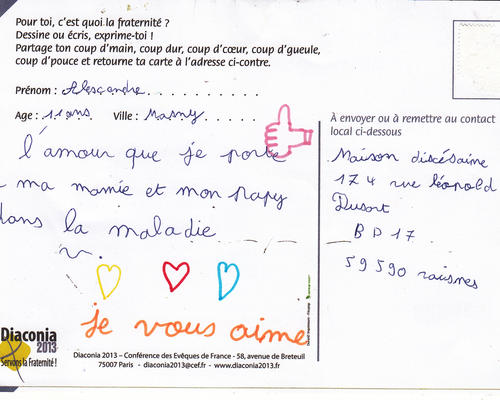 Pour toi, c'est quoi la fraternité ?
Dessine ou écris, exprime-toi !
Partage ton coup d'main, coup dur, coup d'cœur, coup d'gueule,
coup d'pouce et retourne ta carte à l'adresse ci-contre.
Prénom : Alescandre
Age : 11 ans. Ville : Masny
l'amour que je porte
a ma mamie et mon papy
dans la maladie
je vous aime
À envoyer ou à remettre au contact
local ci-dessous
Maison diocésaine
174 rue léopold
Dusart
BP 17
59590 raismes
Diaconia
2013
Servons la Fraternité !
Diaconia 2013 – Conférence des Evêques de France - 58, avenue de Breteuil
75007 Paris - diaconia2013@cef.fr - www.diaconia2013.fr